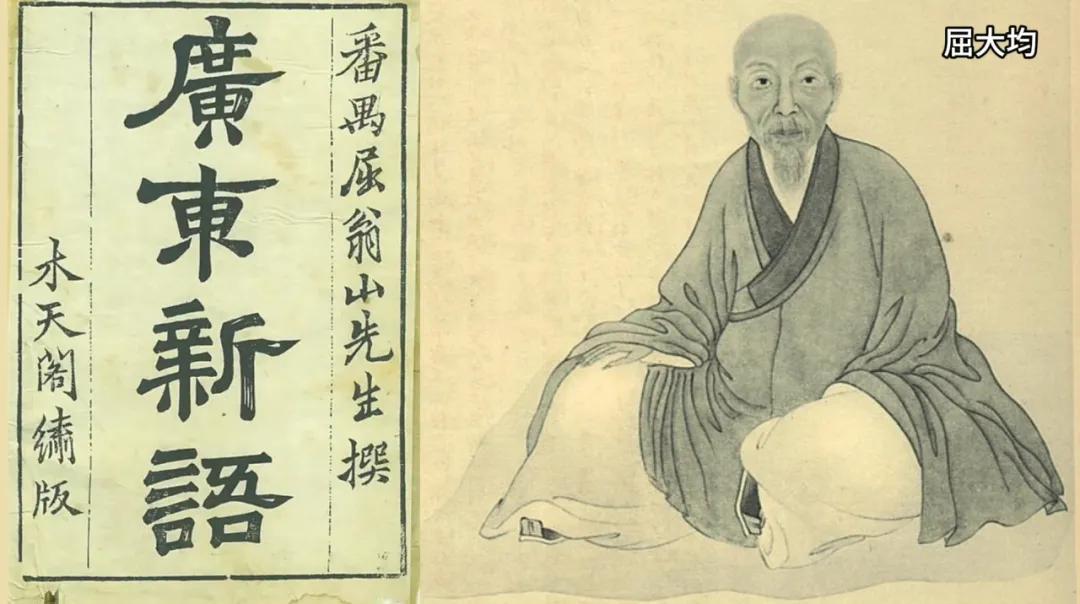 番禺屈翁山先生撰
廣東新語
水天閣繡版
屈大均